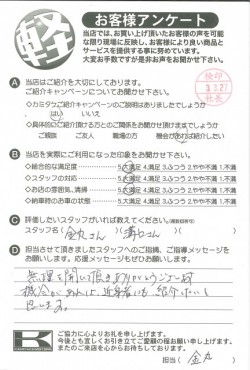 軽
お客様アンケート
当店では、お買い上げ頂いたお客様の声を可能
な限り現場に反映し、お客様により良い商品と
サービスを提供する事に努めています。
大変お手数ですが是非お声をお聞かせ下さい。
検印
3.3.27
社長
A 当店はご紹介を大切にしております。
ご紹介キャンペーンについてお聞かせ下さい。
◇カミタケご紹介キャンペーンのご説明はありましたでしょうか
はい いいえ
◇具体的にご紹介頂ける方とのご関係をお聞かせ頂けますでしょうか
ご親族 ご友人 職場の方 機会があれば紹介したい
B 当店を実際にご利用になった印象をお聞かせ下さい。
◇総合的な満足度 5.大満足 4.満足 3.ふつう 2.やや不満 1.不満
◇スタッフの対応 5.大満足 4.満足 3.ふつう 2.やや不満 1.不満
◇お店の雰囲気、清掃 5.大満足 4.満足 3.ふつう 2.やや不満 1.不満
◇納車時のお車の状態 5.大満足 4.満足 3.ふつう 2.やや不満 1.不満
C 評価したいスタッフがいれば教えてください。
スタッフ名( 金丸さん )( さん )
D 担当させて頂きましたスタッフへのご指摘、ご指導メッセージを
お願いします。応援メッセージもぜひお願いします。
無理を聞いて頂きありがとうございます
機会があれば、 紹介したいと
思います。
K
ご協力に心よりお礼を申し上げます。
今後とも宜しくお引き立てご愛顧の程お願い申し上げます。
またのご来店を心からお待ちしております。
担当( 金丸 )